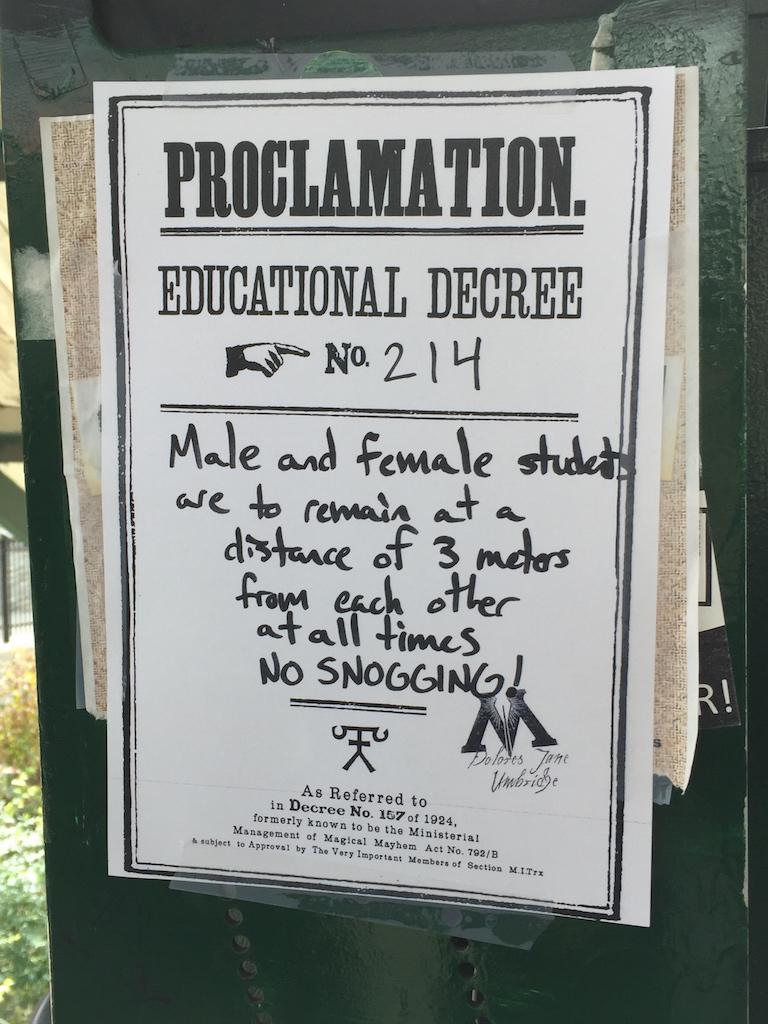 PROCLAMATION.
EDUCATIONAL DECREE
No. 214
Male and female students
are to remain at a
distance of 3 meters
from each other
at all times
NO SNOGGING!
M
Dolores Jane
Umbridge
As Referred to
in Decree No. 157 of 1924,
formerly known to be the Ministerial
Management of Magical Mayhem Act No. 792/B
& subject to Approval by The Very Important Members of Section M.I.Trx
R!
s